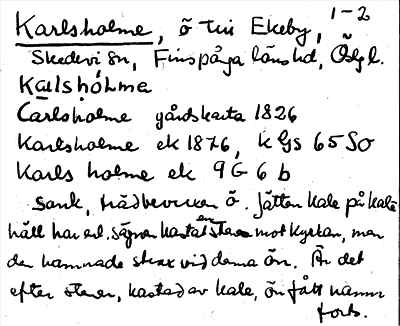 Karlsholme, ö till Ekeby, 1-2
Skedevi sn, Finspånga länshd, Ögl.
Kalshólma
Carlsholme gårdskarta 1826
Karlsholme ek 1876, k GS 65 SO
Karls holme ek 9 G 6 b
Sank, trädbevuxen ö. Jätten Kale på Kale
häll har enl. sägnen kastat en sten mot kyrkan, men
den hamnade strax vid denna ön. Är det
efter stenen, kastad av Kale, ön fått namn
forts.